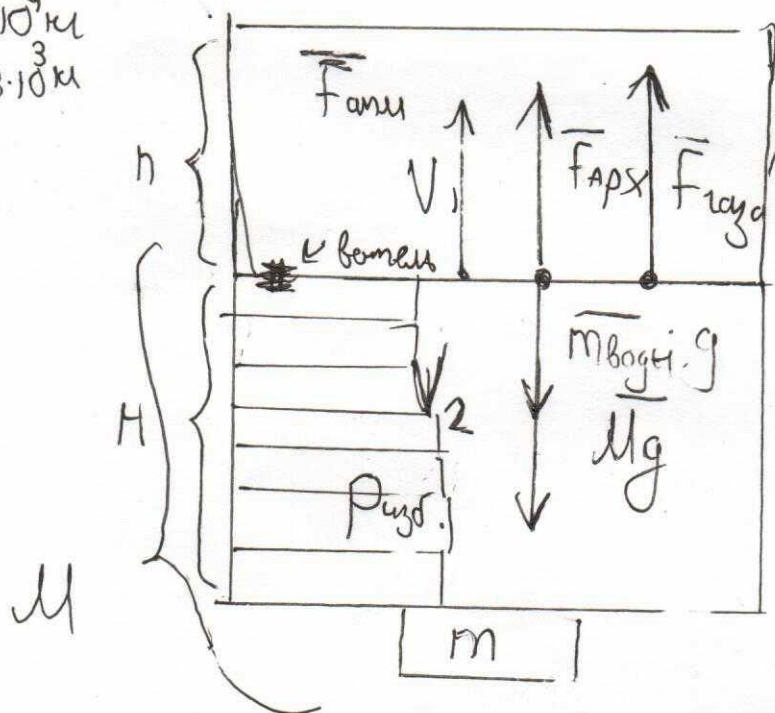 10⁴ м
3·10³ м
h
F атм
V₁
F Арх
F газа
вентель
m водн. g
Mg
H
2
P изб.
M
m